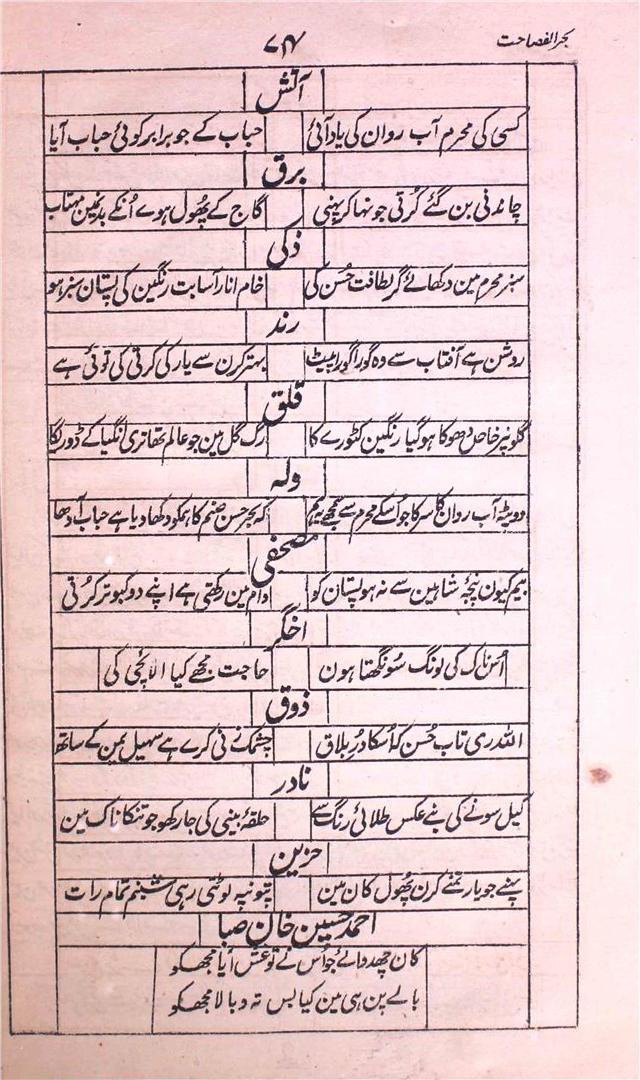 بحر الفصاحت
۷۴۷
آتش
کسی کی محرم آب روان کی یاد آئی حباب کے جو برابر کوئی حباب آیا
برق
چاندنی بن گئے کُرتی جو نہا کر پہنی گاج کے پھول ہوے اُنکے بدنمین مہتاب
ذکی
سبز محرم مین دکھائے گر لطافت حُسن کی خام انار آسا بت رنگین کی پستان سبز ہو
رند
روشن ہے آفتاب سے وہ گورا گورا پیٹ بہتر کرن سے یار کی کرتی کی توئی ہے
قلق
گلو نپر خاصل دھوکا ہوگیا رنگین کٹورے کا رگ گل مین جو عالم تھا تری انگیا کے ڈورے کا
ولہ
دوپٹہ آب روان کا سرکا جو اُسکے محرم سے سمجھے یہ ہم کہ بحر حسن صنم کا ہمکو دکھا دیا ہے حباب آدھا
مصحفی
بیم کیون پنجۂ شاہین سے نہ ہو پستان کو دام مین رکھتی ہے اپنے دو کبوتر کُرتی
اخگر
اُس ناک کی لونگ سُونگھتا ہون حاجت مجھے کیا الائچی کی
ذوق
اللہ ری تاب حُسن کہ اُسکا دُرِ بلاق چشمک زنی کرے ہے سہیل یمن کے ساتھ
نادر
کیل سونے کی بنے عکس طلائی رنگ سے حلقۂ بینی کی جا رکھو جو تنکا ناک مین
حزین
پہنے جو یار تمنے کرن پھُول کان مین پتونپہ لوٹتی رہی شبنم تمام رات
احمد حسین خان صبا
کان چھدوائے جو اُس نے تو غش آیا مجھکو
بالے پن ہی مین کیا بس تہ و بالا مجھکو